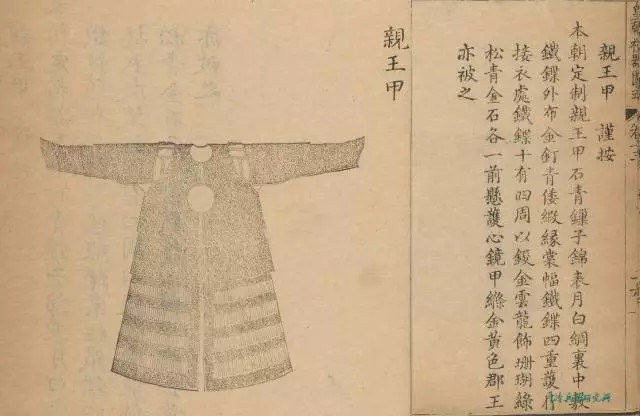 親王甲 謹按
本朝定制親王甲石青鏁子錦表月白綢裏中敷
鐵鍱外布金釘青倭緞緣裳幅鐵鍱四重護肩
接衣處鐵鍱十有四周以鋄金雲龍飾珊瑚綠
松青金石各一前懸護心鏡甲縧金黃色郡王
亦被之
親王甲
冷兵器研究所